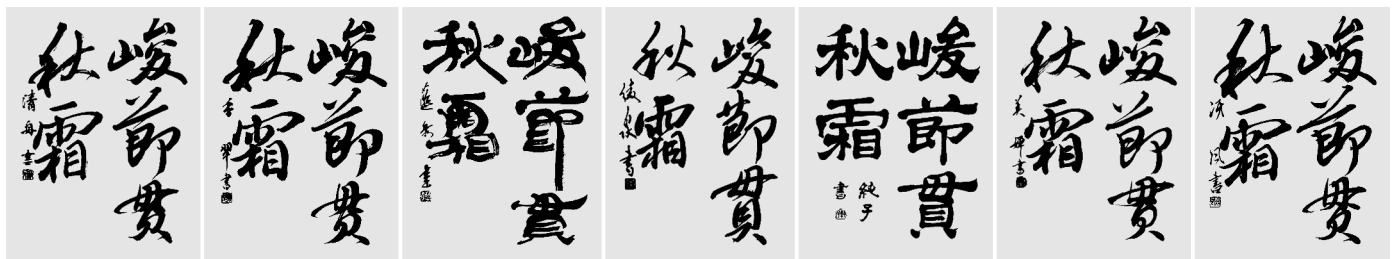 峻節貫
秋霜
清舟書
峻節貫
秋霜
香翠書
峻節貫
秋霜
書
峻節貫
秋霜
書
峻節貫
秋霜
純子
書
峻節貫
秋霜
美碑書
峻節貫
秋霜
風書